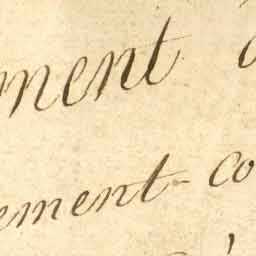 ment
ement co